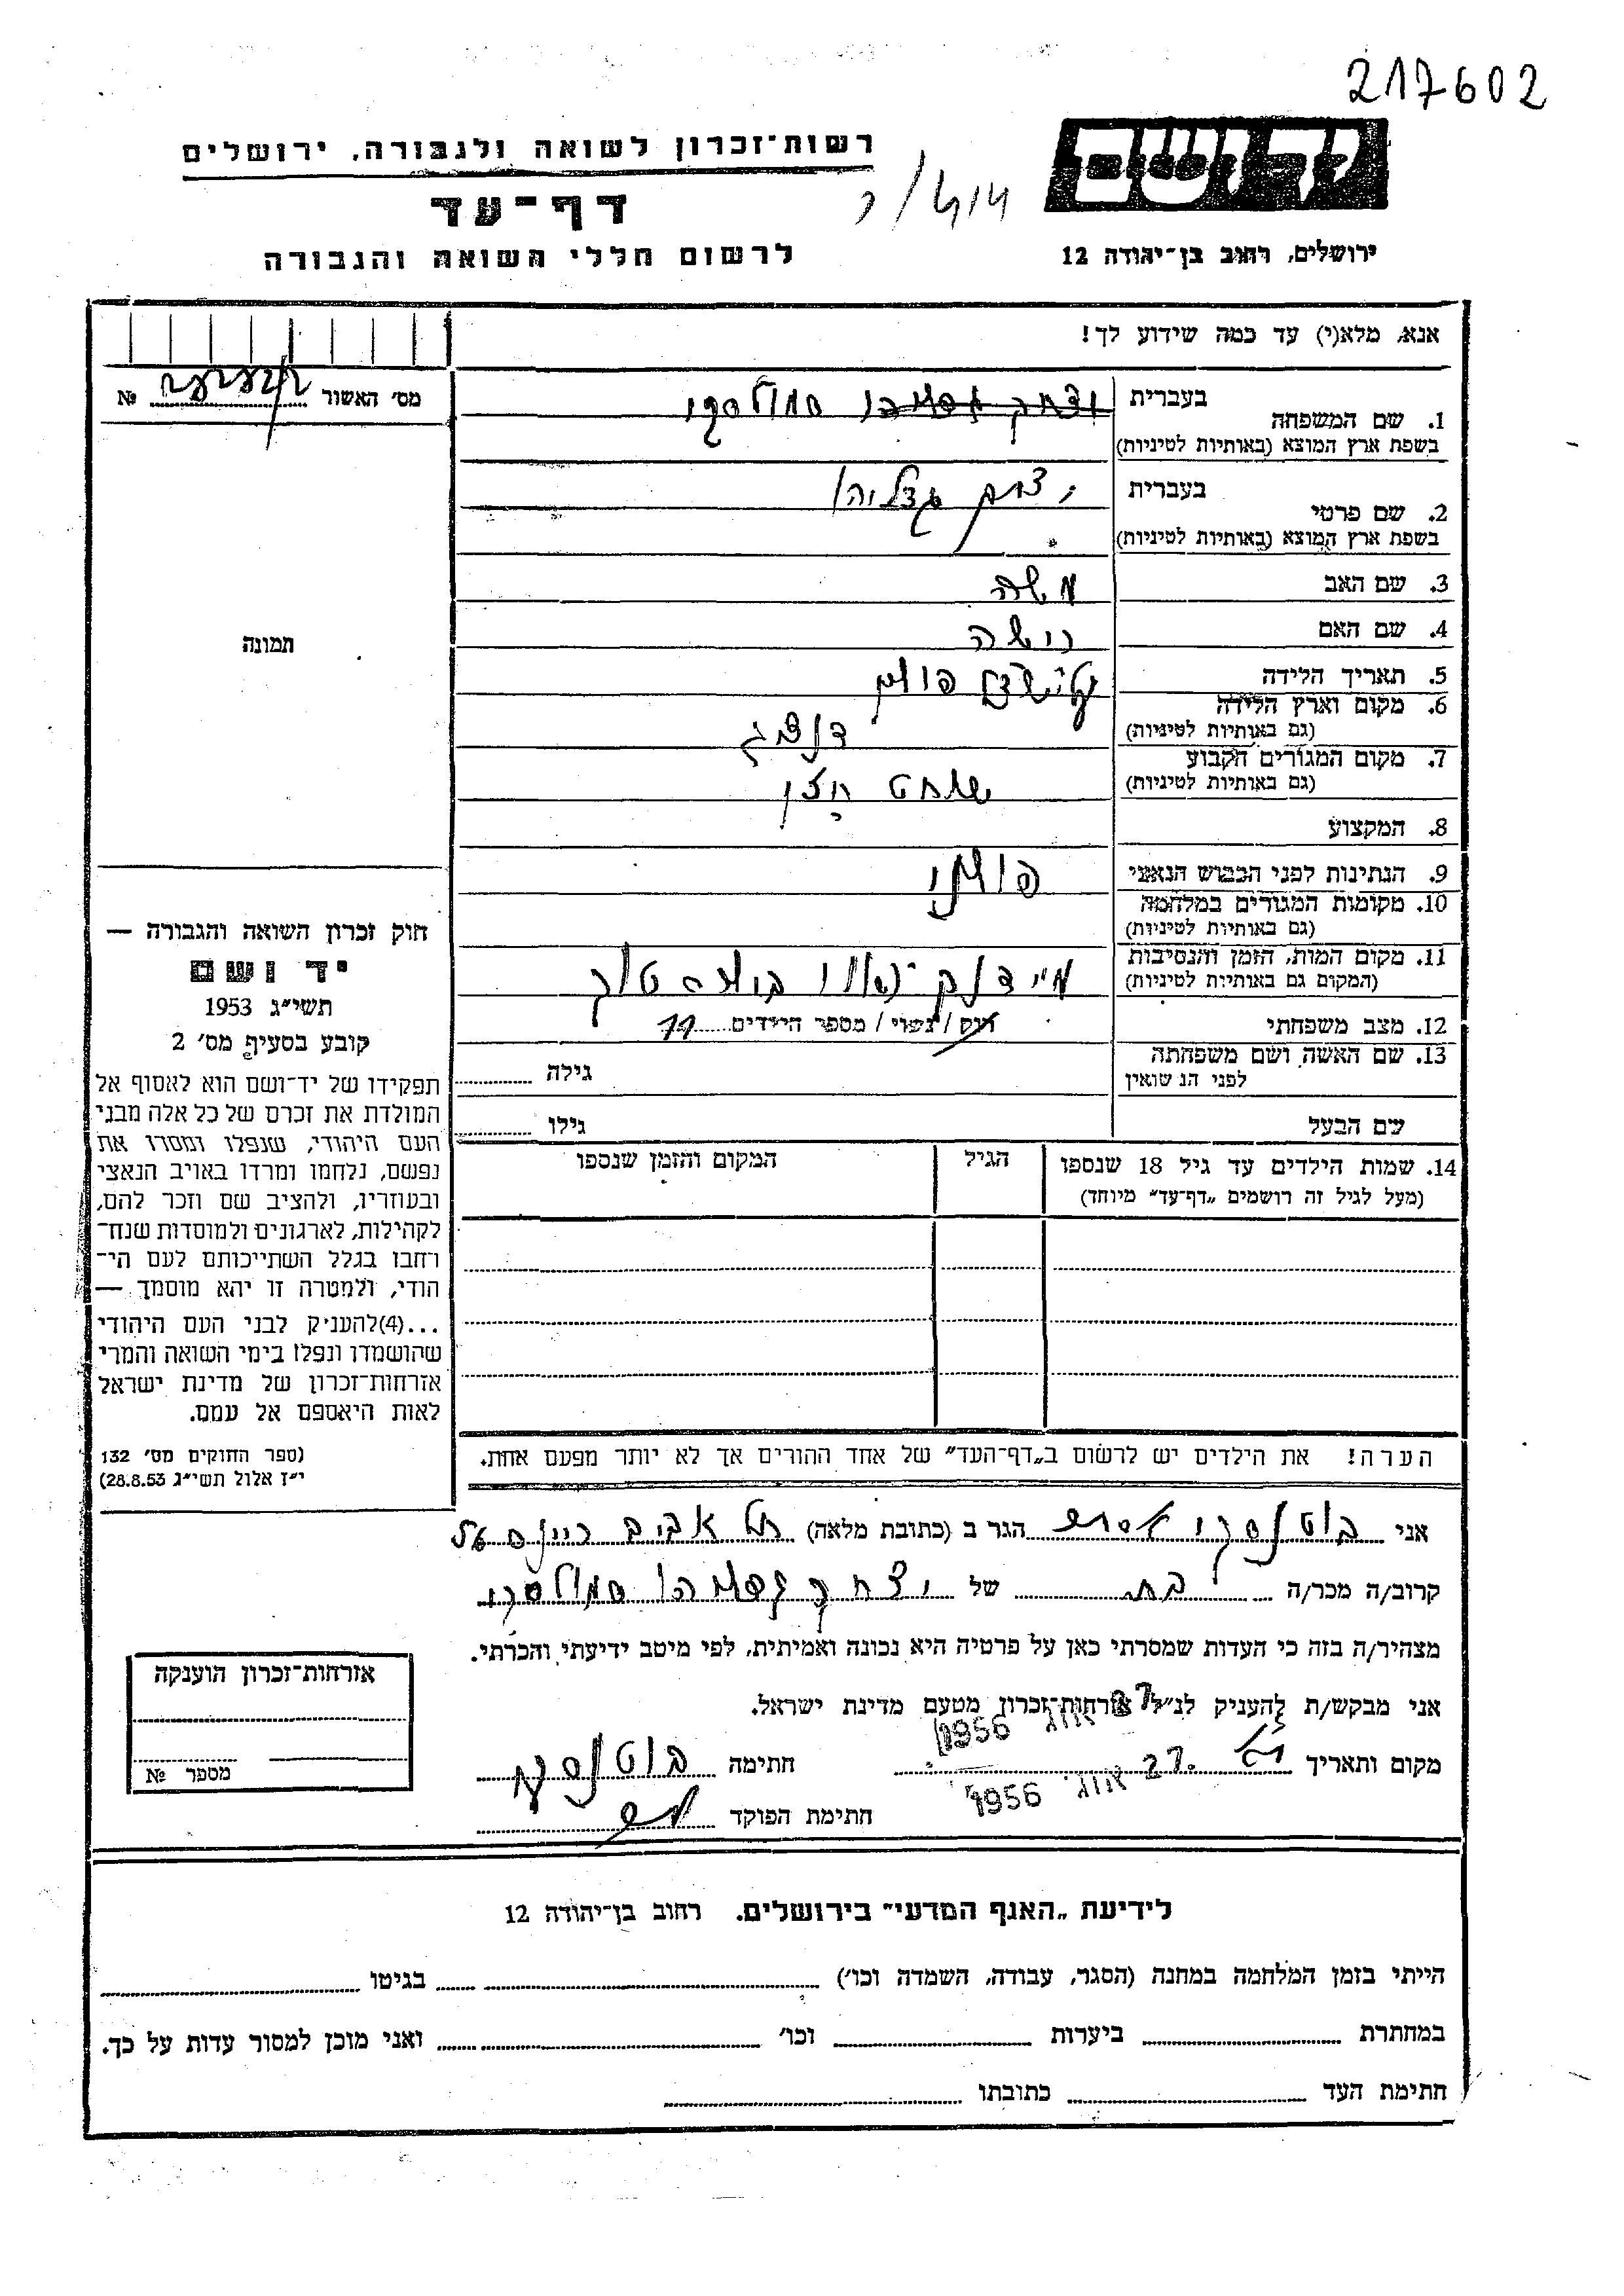 217602
רשות־זכרון לשואה ולגבורה, ירושלים
דף־עד
לרשום חללי השואה והגבורה
ידושם
ירושלים, רחוב בן־יהודה 12
אנא, מלא(י) עד כמה שידוע לך!
מס׳ האשור № 
1. שם המשפחה בעברית סמולסקי
בשפת ארץ המוצא (באותיות לטיניות)
2. שם פרטי בעברית יצחק גדליהו
בשפת ארץ המוצא (באותיות לטיניות)
3. שם האב משה
4. שם האם רישה
5. תאריך הלידה
6. מקום וארץ הלידה
(גם באותיות לטיניות)
דנציג
7. מקום המגורים הקבוע
(גם באותיות לטיניות)
שוחט חזן
8. המקצוע
9. הנתינות לפני הכבוש הנאצי פולני
10. מקומות המגורים במלחמה
(גם באותיות לטיניות)
11. מקום המות, הזמן והנסיבות
(המקום גם באותיות לטיניות)
מיידנק
12. מצב משפחתי רוק/נשוי/מספר הילדים 11
13. שם האשה ושם משפחתה
לפני הנשואין
גילה
שם הבעל גילו
14. שמות הילדים עד גיל 18 שנספו
(מעל לגיל זה רושמים „דף־עד״ מיוחד)
הגיל
המקום והזמן שנספו
הערה! את הילדים יש לרשום ב„דף־העד״ של אחד ההורים אך לא יותר מפעם אחת.
תמונה
חוק זכרון השואה והגבורה —
יד ושם
תשי״ג 1953
קובע בסעיף מס׳ 2
תפקידו של יד־ושם הוא לאסוף אל
המולדת את זכרם של כל אלה מבני
העם היהודי, שנפלו ומסרו את
נפשם, נלחמו ומרדו באויב הנאצי
ובעוזריו, ולהציב שם וזכר להם,
לקהילות, לארגונים ולמוסדות שנח־
רחבו בגלל השתייכותם לעם הי־
הודי, ולמטרה זו יהא מוסמך —
...(4) להעניק לבני העם היהודי
שהושמדו ונפלו בימי השואה והמרי
אזרחות־זכרון של מדינת ישראל
לאות היאספם אל עמם.
(ספר החוקים מס׳ 132
י״ז אלול תשי״ג 28.8.53)
אני בוטנסקי אסתר הגר ב (כתובת מלאה) תל אביב ריינס
קרוב/ה מכר/ה בת של יצחק סמולסקי
מצהיר/ה בזה כי העדות שמסרתי כאן על פרטיה היא נכונה ואמיתית, לפי מיטב ידיעתי והכרתי.
אני מבקש/ת להעניק לנ״ל אזרחות־זכרון מטעם מדינת ישראל.
27 אוג׳ 1956
מקום ותאריך 27 אוג׳ 1956 חתימה
חתימת הפוקד
אזרחות־זכרון הוענקה
מספר №
לידיעת „האגף המדעי״ בירושלים. רחוב בן־יהודה 12
הייתי בזמן המלחמה במחנה (הסגר, עבודה, השמדה וכו׳) בגיטו
במחתרת ביערות וכו׳ ואני מוכן למסור עדות על כך.
חתימת העד כתובתו